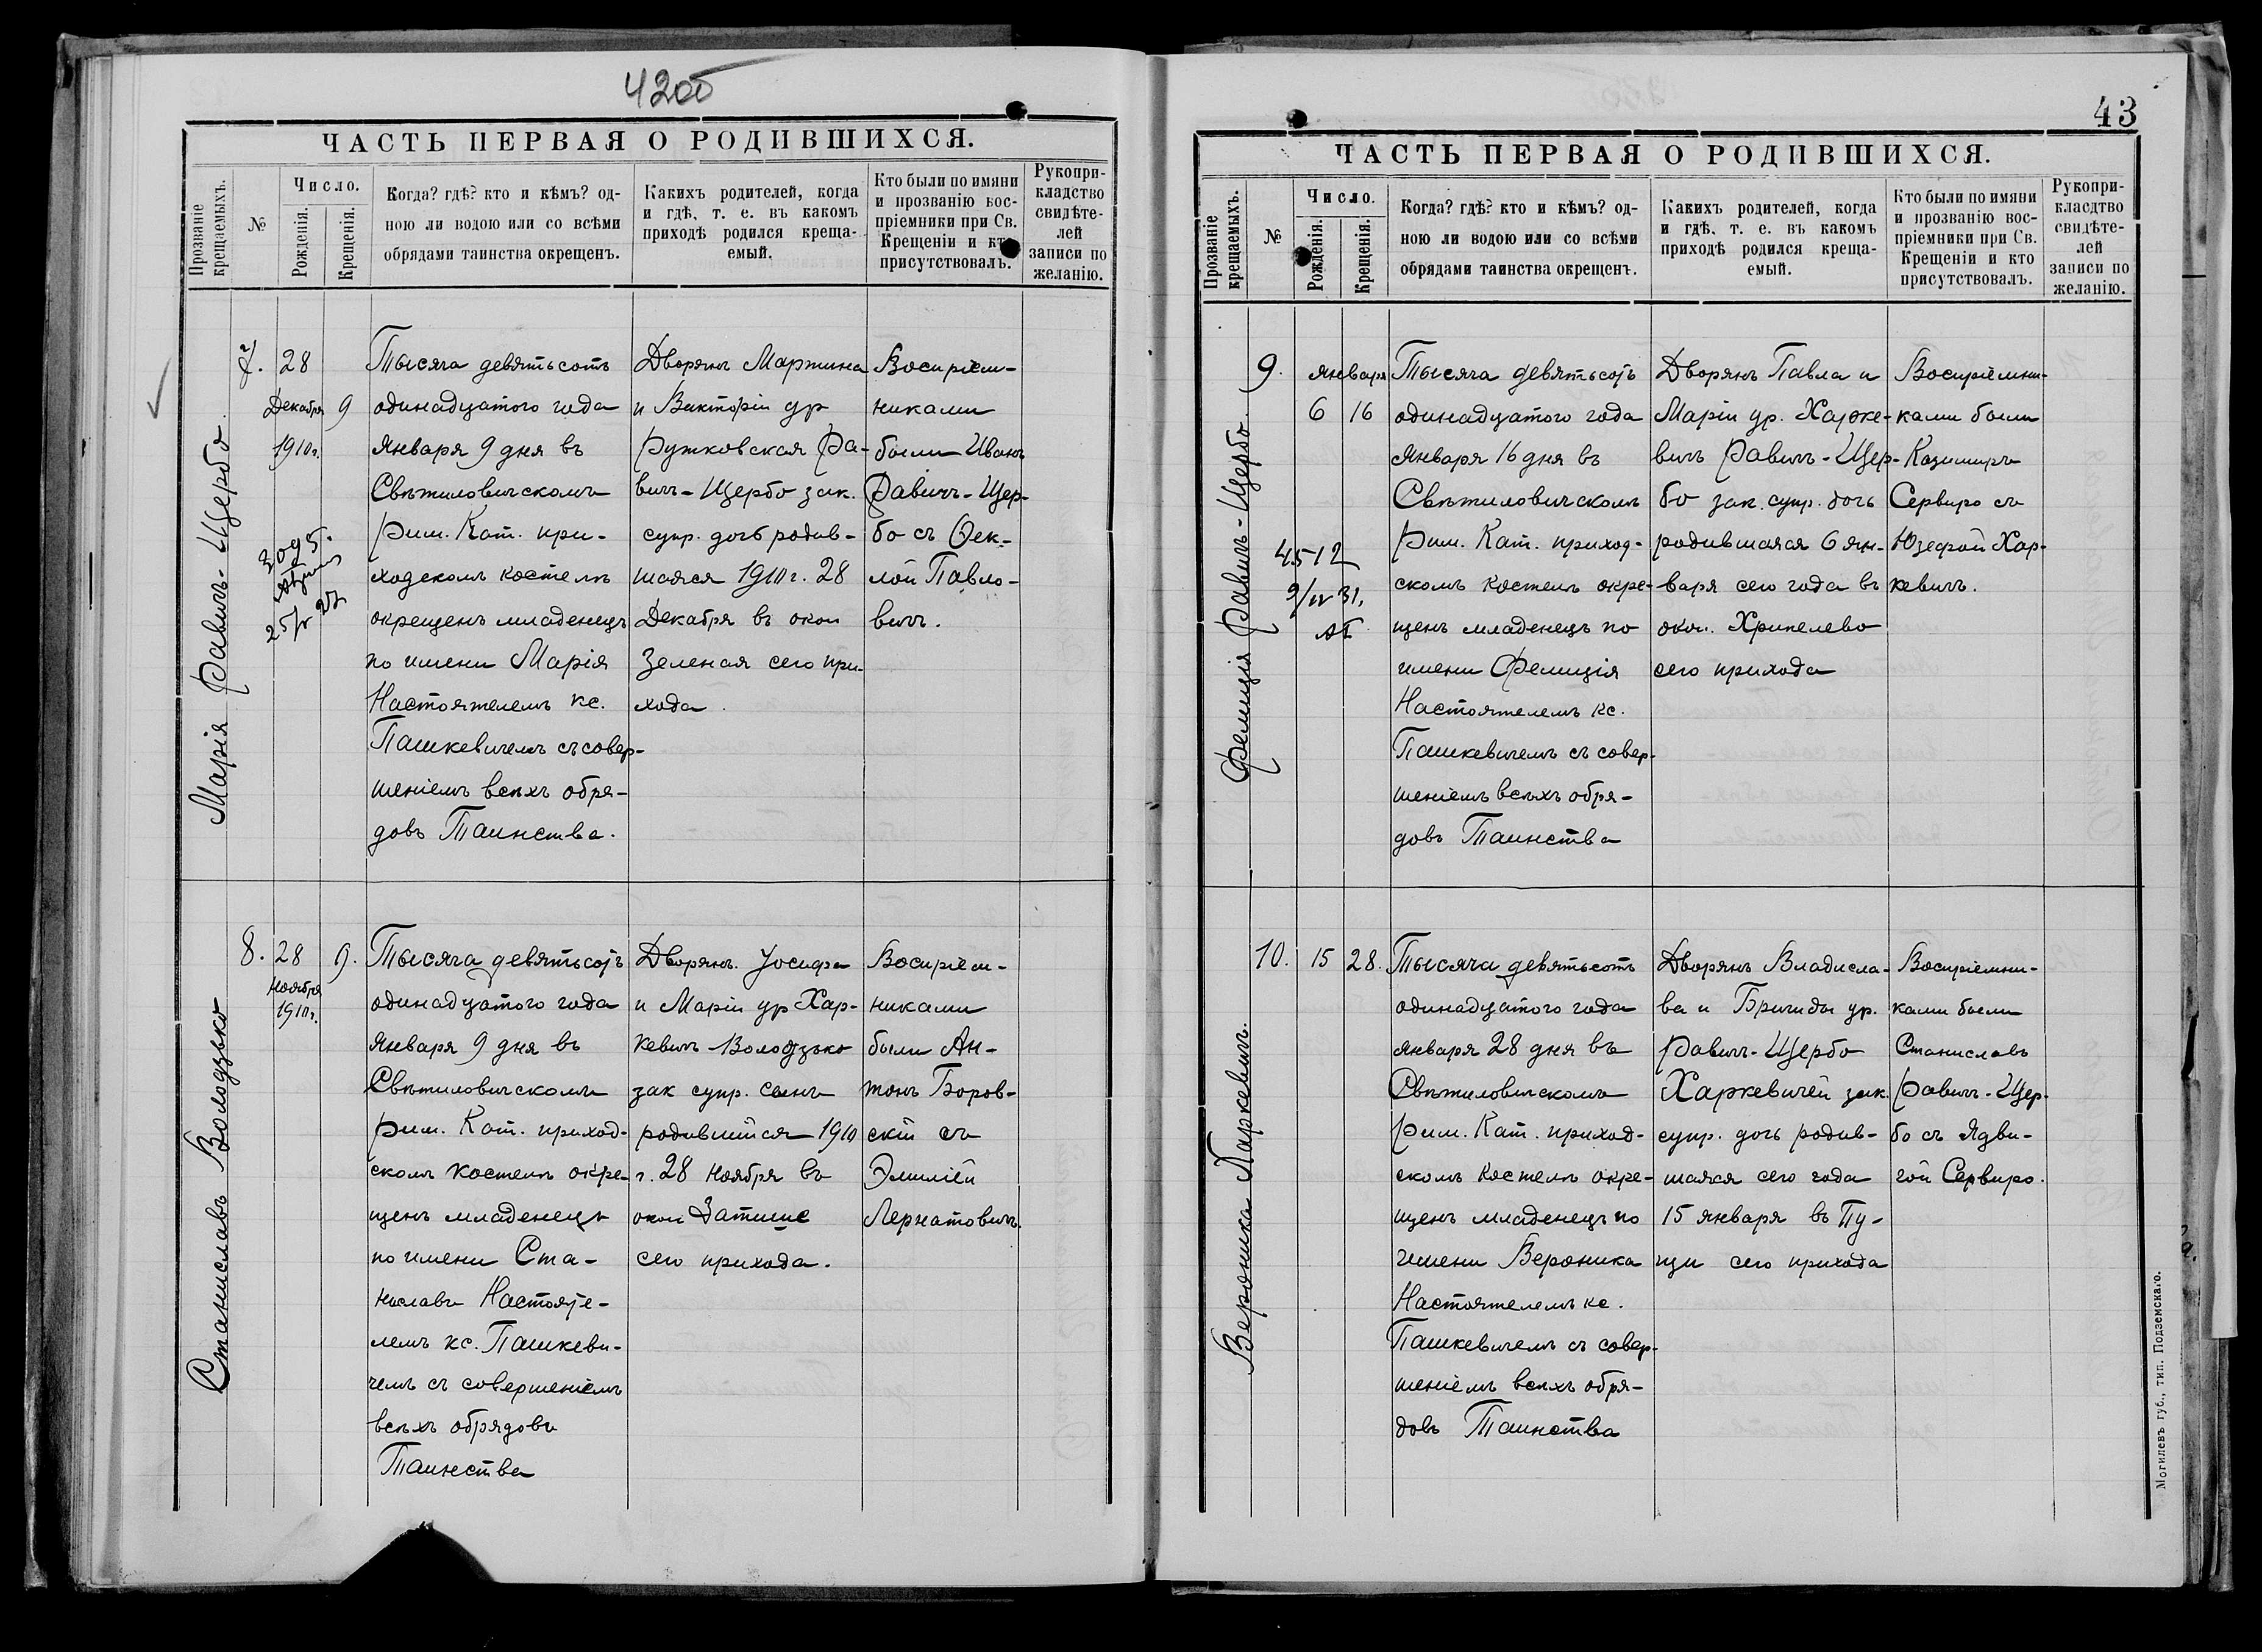 42об
ЧАСТЬ ПЕРВАЯ О РОДИВШИХСЯ.
Прозваніе крещаемыхъ.
№
Число.
Рожденія.
Крещенія.
Когда? гдѣ? кто и кѣмъ? од-
ною ли водою или со всѣми
обрядами таинства окрещенъ.
Какихъ родителей, когда
и гдѣ, т. е. въ какомъ
приходѣ родился креща-
емый.
Кто были по имяни
и прозванію вос-
пріемники при Св.
Крещеніи и кто
присутствовалъ.
Рукопри-
кладство
свидѣте-
лей
записи по
желанію.
Марія Равичъ-Щербо
7.
28
Декабря
1910 г.
9
3095.
Тысяча девятьсотъ
одинадцатого года
Января 9 дня въ
Свѣтиловичскомъ
Рим. Кат. при-
ходскомъ костелѣ
окрещенъ младенецъ
по имени Марія
Настоятелемъ кс.
Пашкевичемъ съ совер-
шеніемъ всѣхъ обря-
довъ Таинства.
Дворянъ Мартина
и Викторіи ур
Рутковская Ра-
вичъ-Щербо зак.
супр. дочь родив-
шаяся 1910 г. 28
Декабря въ окол
Зеленая сего при-
хода.
Воспріем-
никами
были Иванъ
Равичъ-Щер-
бо съ Ѳек-
лой Павло-
вичъ.
Станиславъ Володзько
8.
28
Ноября
1910 г.
9.
Тысяча девятьсотъ
одинадцатого года
Января 9 дня въ
Свѣтиловичскомъ
Рим. Кат. приход-
скомъ костелѣ окре-
щенъ младенецъ
по имени Ста-
ниславъ Настояте-
лемъ кс. Пашкеви-
чемъ съ совершеніемъ
всѣхъ обрядовъ
Таинства
Дворянъ Іосифа
и Маріи ур Хар-
кевичъ-Володзько
зак супр. сынъ
родившійся 1910
г. 28 Ноября въ
окол Затишье
сего прихода.
Воспріем-
никами
были Ан-
тонъ Боров-
скій съ
Эмиліей
Лернатовичъ.
43
ЧАСТЬ ПЕРВАЯ О РОДИВШИХСЯ.
Прозваніе крещаемыхъ.
№
Число.
Рожденія.
Крещенія.
Когда? гдѣ? кто и кѣмъ? од-
ною ли водою или со всѣми
обрядами таинства окрещенъ.
Какихъ родителей, когда
и гдѣ, т. е. въ какомъ
приходѣ родился креща-
емый.
Кто были по имяни
и прозванію вос-
пріемники при Св.
Крещеніи и кто
присутствовалъ.
Рукопри-
класдтво
свидѣте-
лей
записи по
желанію.
Фелиція Равичъ-Щербо
9.
Января
6 16
4512
9/IV 31.
Тысяча девятьсотъ
одинадцатого года
Января 16 дня въ
Свѣтиловичскомъ
Рим. Кат. приход-
скомъ костелѣ окре-
щенъ младенецъ по
имени Фелиція
Настоятелемъ кс.
Пашкевичемъ съ совер-
шеніемъ всѣхъ обря-
довъ Таинства
Дворянъ Павла и
Маріи ур. Харке-
вичъ Равичъ-Щер-
бо зак. супр. дочь
родившаяся 6 Ян-
варя сего года въ
окол. Хрипелево
сего прихода
Воспріемни-
ками были
Казимиръ
Сервиро съ
Юзефой Хар-
кевичъ.
Вероника Харкевичъ.
10.
15
28.
Тысяча девятьсотъ
одинадцатого года
Января 28 дня въ
Свѣтиловичскомъ
Рим. Кат. приход-
скомъ костелѣ окре-
щенъ младенецъ по
имени Вероника
Настоятелемъ кс.
Пашкевичемъ съ совер-
шеніемъ всѣхъ обря-
довъ Таинства
Дворянъ Владисла-
ва и Бригиды ур.
Равичъ-Щербо
Харкевичей зак.
супр. дочь родив-
шаяся сего года
15 января въ Пу-
щи сего прихода
Воспріемни-
ками были
Станиславъ
Равичъ-Щер-
бо съ Ядви-
гой Сервиро.
Могилевъ губ., тип. Подземскаго.